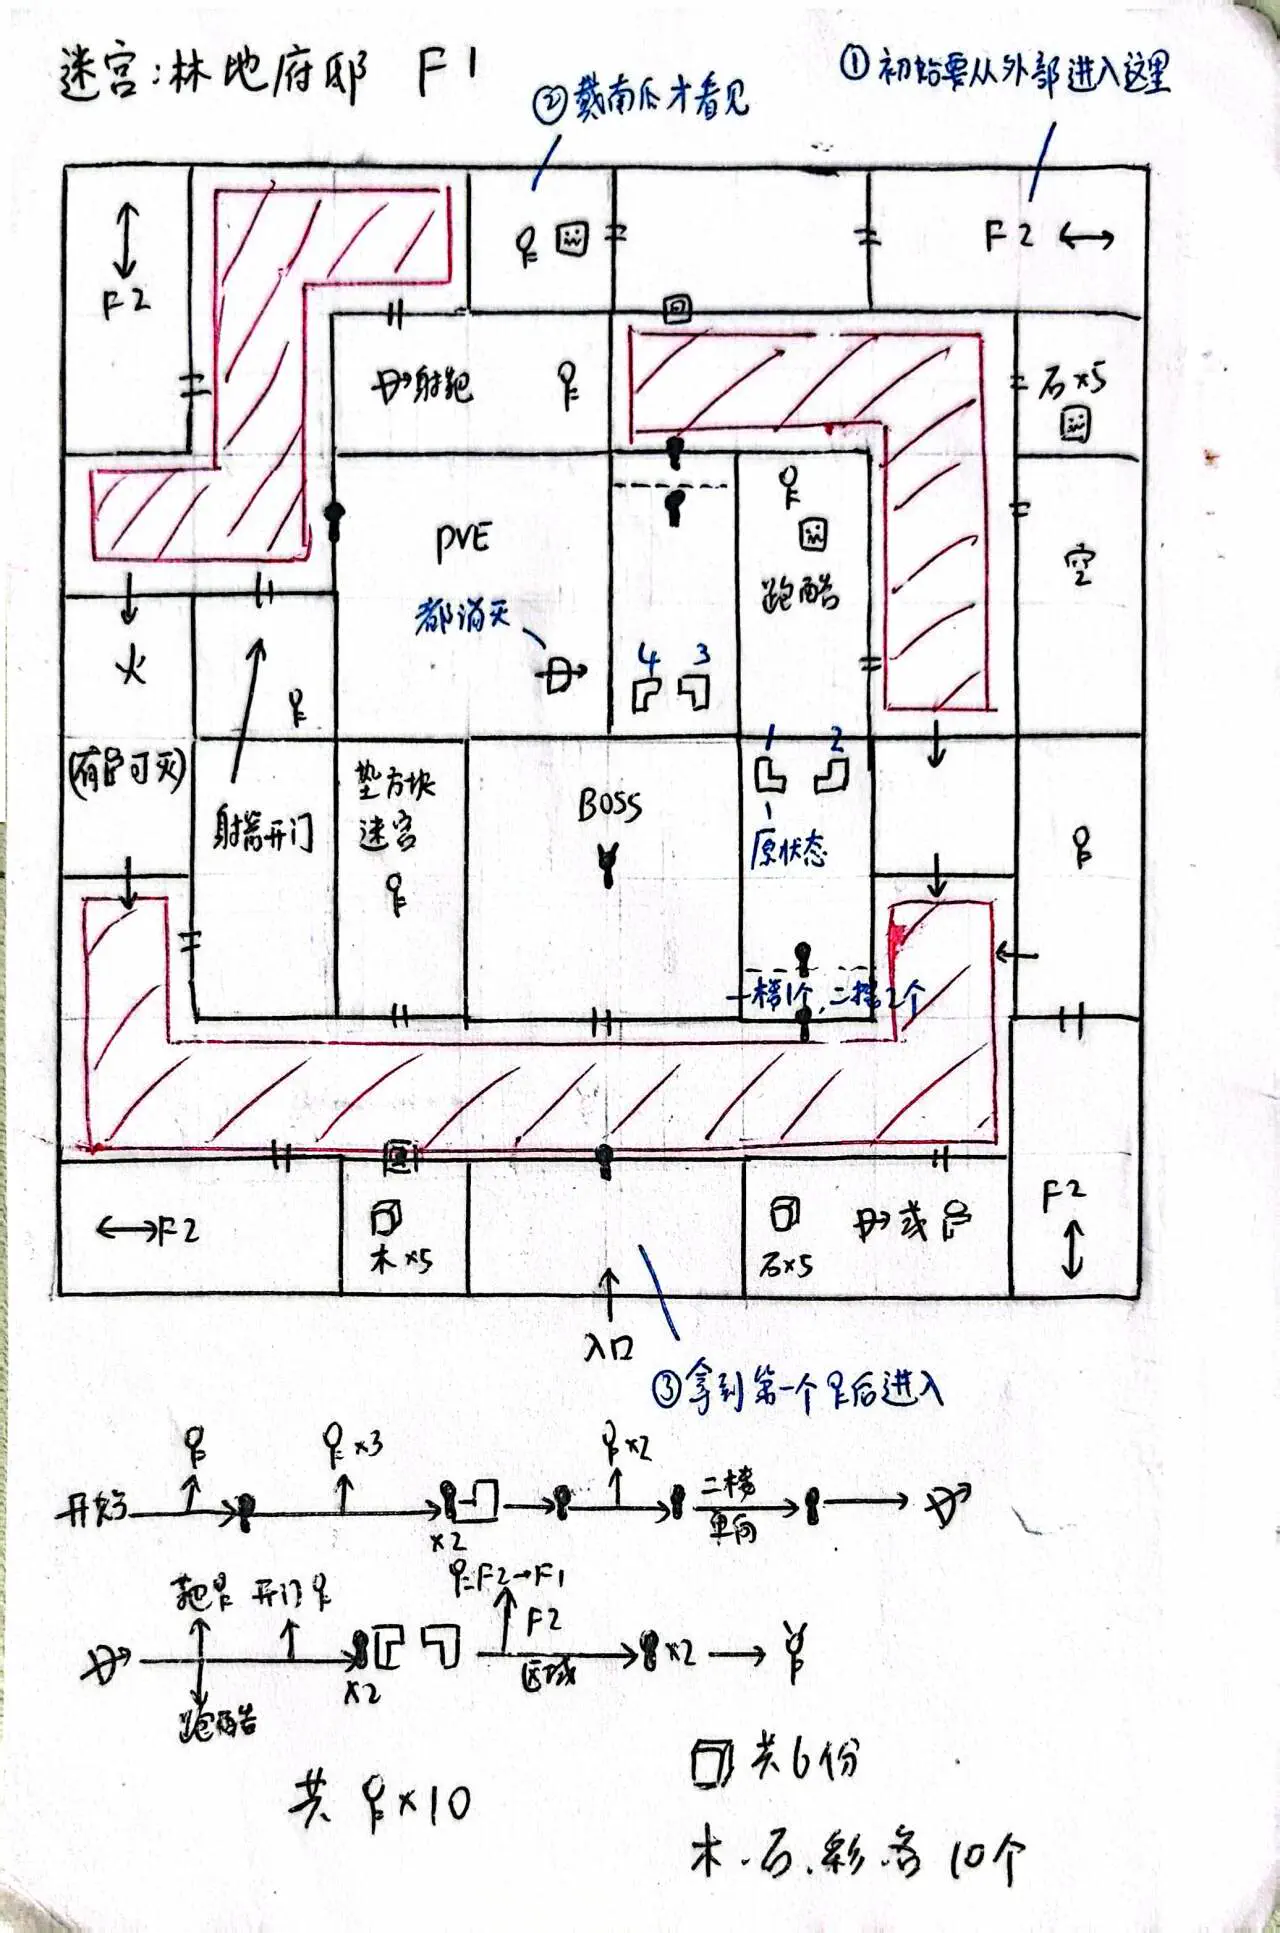 迷宫:林地府邸 F1
①初始要从外部进入这里
②戴南瓜才看见
F2
F2
射靶
石×5
PVE
都消灭
空
跑酷
火
4 3
(有 可灭)
垫方块
迷宫
BOSS
1 2
射箭开门
原状态
一楼1个,二楼2个
F2
木×5
石×5
或
F2
入口
③拿到第一个 后进入
×3
×2
开始
二楼
单向
×2
靶 开门
F2→F1
F2
区域
×2
×2
跑酷
共 ×10
共6份
木.石.彩.各10个